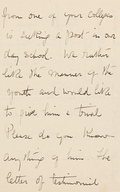 from one of your colleges
is seeking a post in our
day school. We rather
like the manner of the
youth and would like
to give him a trial
Please do you know
anything of him the
letter of testimonial